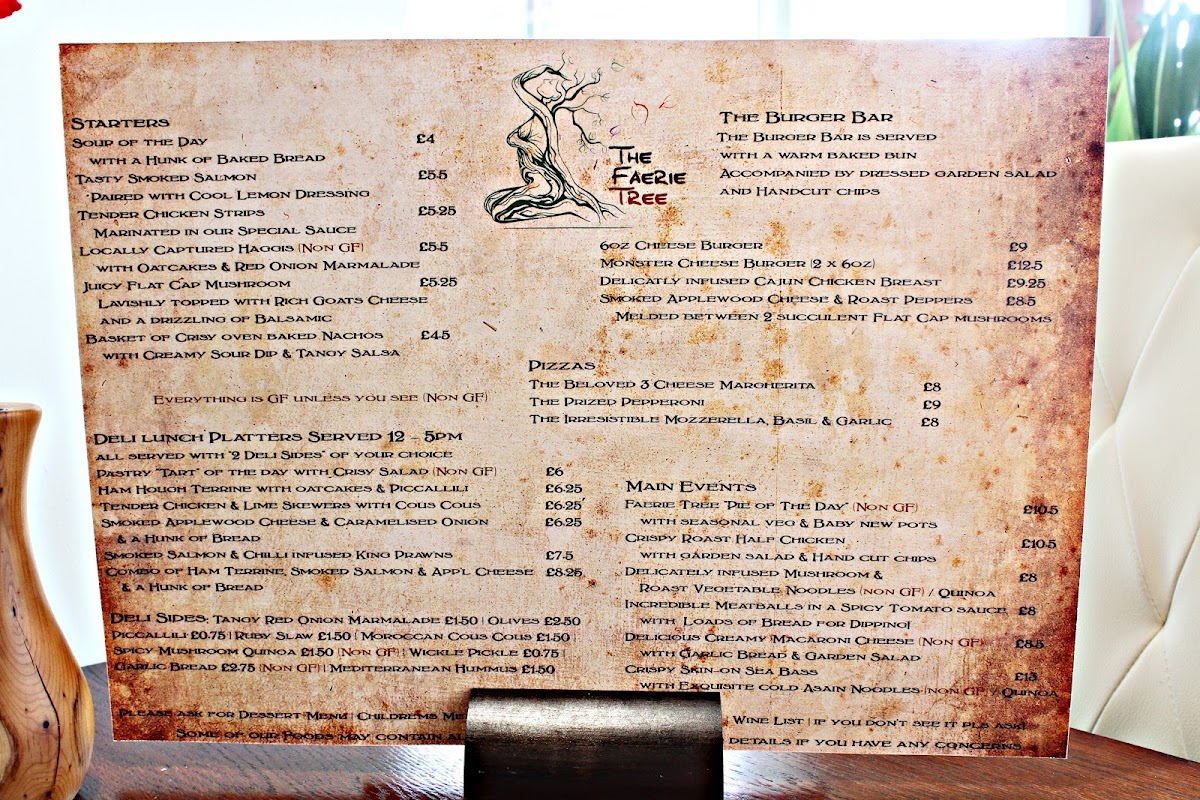 The Faerie Tree
Starters
Soup of the Day £4
with a Hunk of Baked Bread
Tasty Smoked Salmon £5.5
Paired with Cool Lemon Dressing
Tender Chicken Strips £5.25
Marinated in our Special Sauce
Locally Captured Haggis (Non GF) £5.5
with Oatcakes & Red Onion Marmalade
Juicy Flat Cap Mushroom £5.25
Lavishly topped with Rich Goats Cheese
and a drizzling of Balsamic
Basket of Crisy oven baked Nachos £4.5
with Creamy Sour Dip & Tangy Salsa
Everything is GF unless you see (Non GF)
Deli lunch Platters Served 12 - 5pm
all served with "2 Deli Sides" of your choice
Pastry "Tart" of the day with Crisy Salad (Non GF) £6
Ham Hough Terrine with oatcakes & Piccallili £6.25
Tender Chicken & Lime Skewers with Cous Cous £6.25
Smoked Applewood Cheese & Caramelised Onion £6.25
& a Hunk of Bread
Smoked Salmon & Chilli infused King Prawns £7.5
Combo of Ham Terrine, Smoked Salmon & App'l Cheese £8.25
& a Hunk of Bread
Deli Sides: Tangy Red Onion Marmalade £1.50 | Olives £2.50
Piccallili £0.75 | Ruby Slaw £1.50 | Moroccan Cous Cous £1.50 |
Spicy Mushroom Quinoa £1.50 (Non GF) | Wickle Pickle £0.75 |
Garlic Bread £2.75 (Non GF) | Mediterranean Hummus £1.50
The Burger Bar
The Burger Bar is served
with a warm baked bun
Accompanied by dressed garden salad
and Handcut chips
6oz Cheese Burger £9
Monster Cheese Burger (2 x 6oz) £12.5
Delicatly infused Cajun Chicken Breast £9.25
Smoked Applewood Cheese & Roast Peppers £8.5
Melded between 2 succulent Flat Cap mushrooms
Pizzas
The Beloved 3 Cheese Margherita £8
The Prized Pepperoni £9
The Irresistible Mozzerella, Basil & Garlic £8
Main Events
Faerie Tree "Pie of The Day" (Non GF) £10.5
with seasonal veg & Baby new pots
Crispy Roast Half Chicken £10.5
with garden salad & Hand cut chips
Delicately infused Mushroom & £8
Roast Vegetable Noodles (non GF) / Quinoa
Incredible Meatballs in a Spicy Tomato sauce £8
with Loads of Bread for Dipping!
Delicious Creamy Macaroni Cheese (Non GF) £8.5
with Garlic Bread & Garden Salad
Crispy Skin-on Sea Bass £13
with Exquisite cold Asain Noodles (non GF) / Quinoa
Please ask for Dessert Menu | Childrens Me Wine List | if you don't see it pls ask!
Some of our Foods may contain al details if you have any concerns